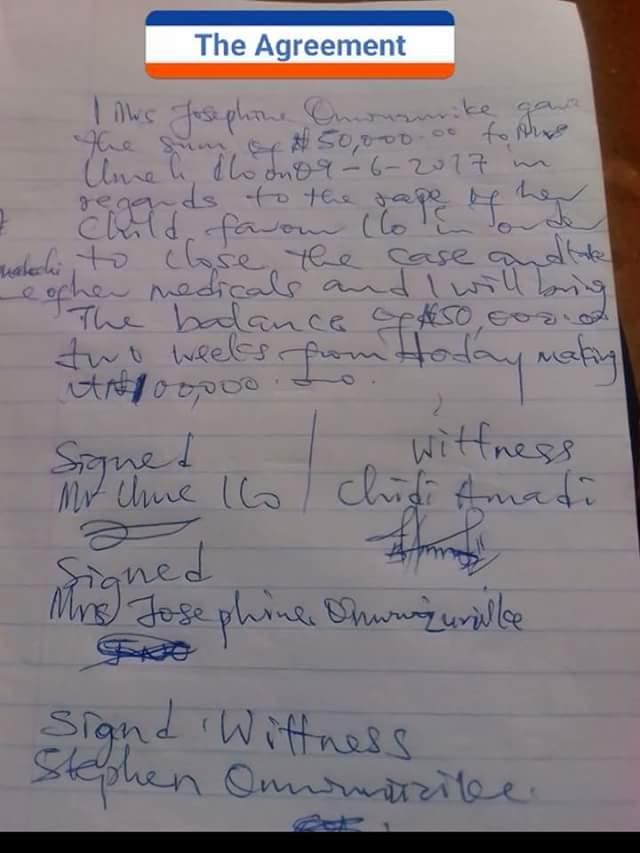 The Agreement
I Mrs Josephine Onwuzurike gave
the sum of ₦50,000.00 to Mrs
Ume Ilo on 09-6-2017 in
regards to the rape of her
Child favour Ilo in order
to close the case and take
of her medicals and I will bring
The balance of ₦50,000.00
two weeks from today making
₦100,000.00.
Signed | Wittness
Mr Ume Ilo | Chidi Amadi
Signed
Mrs Josephine Onwuzurike
Signd: Wittness
Stephen Onwuzurike.